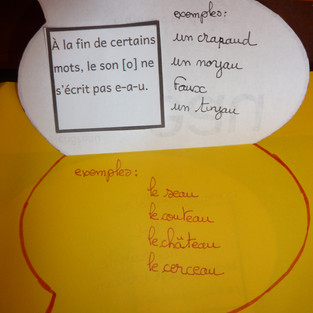 À la fin de certains
mots, le son [o] ne
s'écrit pas e-a-u.
exemples:
un crapaud
un noyau
Faux
un tuyau
exemples:
le seau
le couteau
le château
le cerceau